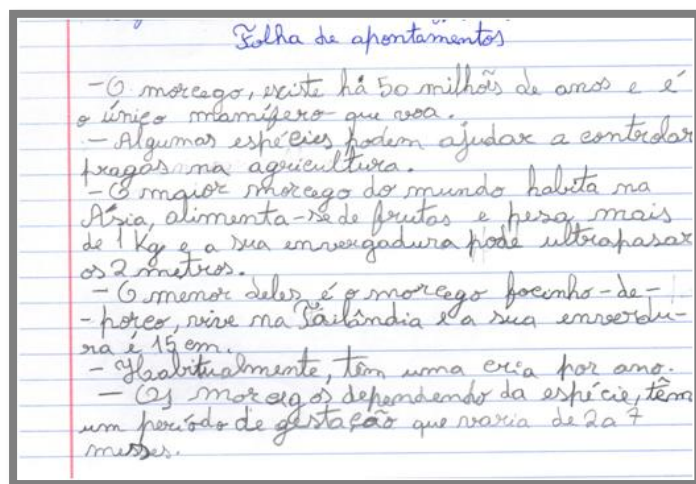 Folha de apontamentos
- O morcego, existe há 50 milhões de anos e é
o único mamífero que voa.
- Algumas espécies podem ajudar a controlar
pragas na agricultura.
- O maior morcego do mundo habita na
Ásia, alimenta-se de frutos e pesa mais
de 1 Kg e a sua envergadura pode ultrapasar
os 2 metros.
- O menor deles é o morcego focinho-de-
-porco, vive na Tailândia e a sua enverdu-
ra é 15 cm.
- Habitualmente, têm uma cria por ano.
- Os morcegos dependendo da espécie, têm
um período de gestação que varia de 2 a 7
messes.